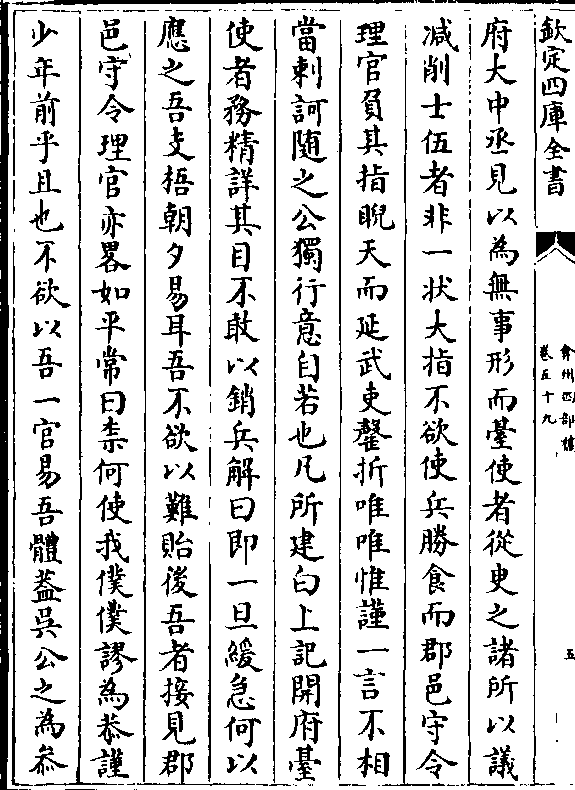 欽定四庫全書
弇州四部稿
卷五十九
五
府大中丞見以為無事形而臺使者從臾之諸所以議
减削士伍者非一状大指不欲使兵勝食而郡邑守令
理官負其指睨天而延武吏罄折唯唯惟謹一言不相
當刺訶随之公獨行意自若也凡所建白上記開府臺
使者務精詳其目不敢以銷兵解曰即一旦緩急何以
應之吾支梧朝夕易耳吾不欲以難貽後吾者接見郡
邑守令理官亦畧如平常曰柰何使我僕僕謬為恭謹
少年前乎且也不欲以吾一官易吾體葢吳公之為叅